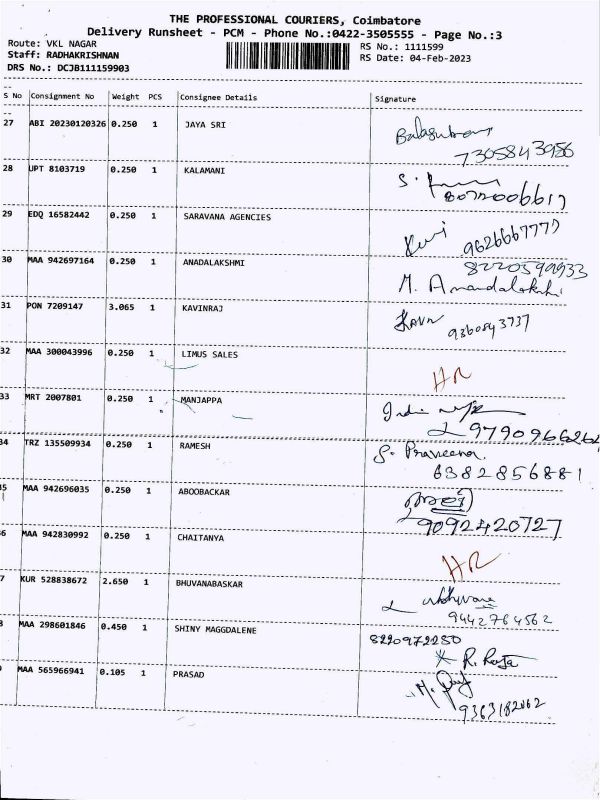 THE PROFESSIONAL COURIERS, Coimbatore
Delivery Runsheet - PCM - Phone No.:0422-3505555 - Page No.:3
Route: VKL NAGAR
Staff: RADHAKRISHNAN
DRS No.: DCJB111159903
RS No.: 1111599
RS Date: 04-Feb-2023
S No Consignment No Weight PCS Consignee Details Signature
27 ABI 20230120326 0.250 1 JAYA SRI
7305843956
28 UPT 8103719 0.250 1 KALAMANI
29 EDQ 16582442 0.250 1 SARAVANA AGENCIES
9626667777
30 MAA 942697164 0.250 1 ANADALAKSHMI 8220599933
M. Anandalakshi
31 PON 7209147 3.065 1 KAVINRAJ
9360843737
32 MAA 300043996 0.250 1 LIMUS SALES
HR
33 MRT 2007801 0.250 1 MANJAPPA
34 TRZ 135509934 0.250 1 RAMESH S. Praveena.
6382856881
35 MAA 942696035 0.250 1 ABOOBACKAR
9092420727
6 MAA 942830992 0.250 1 CHAITANYA
HR
7 KUR 528838672 2.650 1 BHUVANABASKAR
9442764562
8 MAA 298601846 0.450 1 SHINY MAGGDALENE 8220972280
R. Roja
MAA 565966941 0.105 1 PRASAD
9363182062